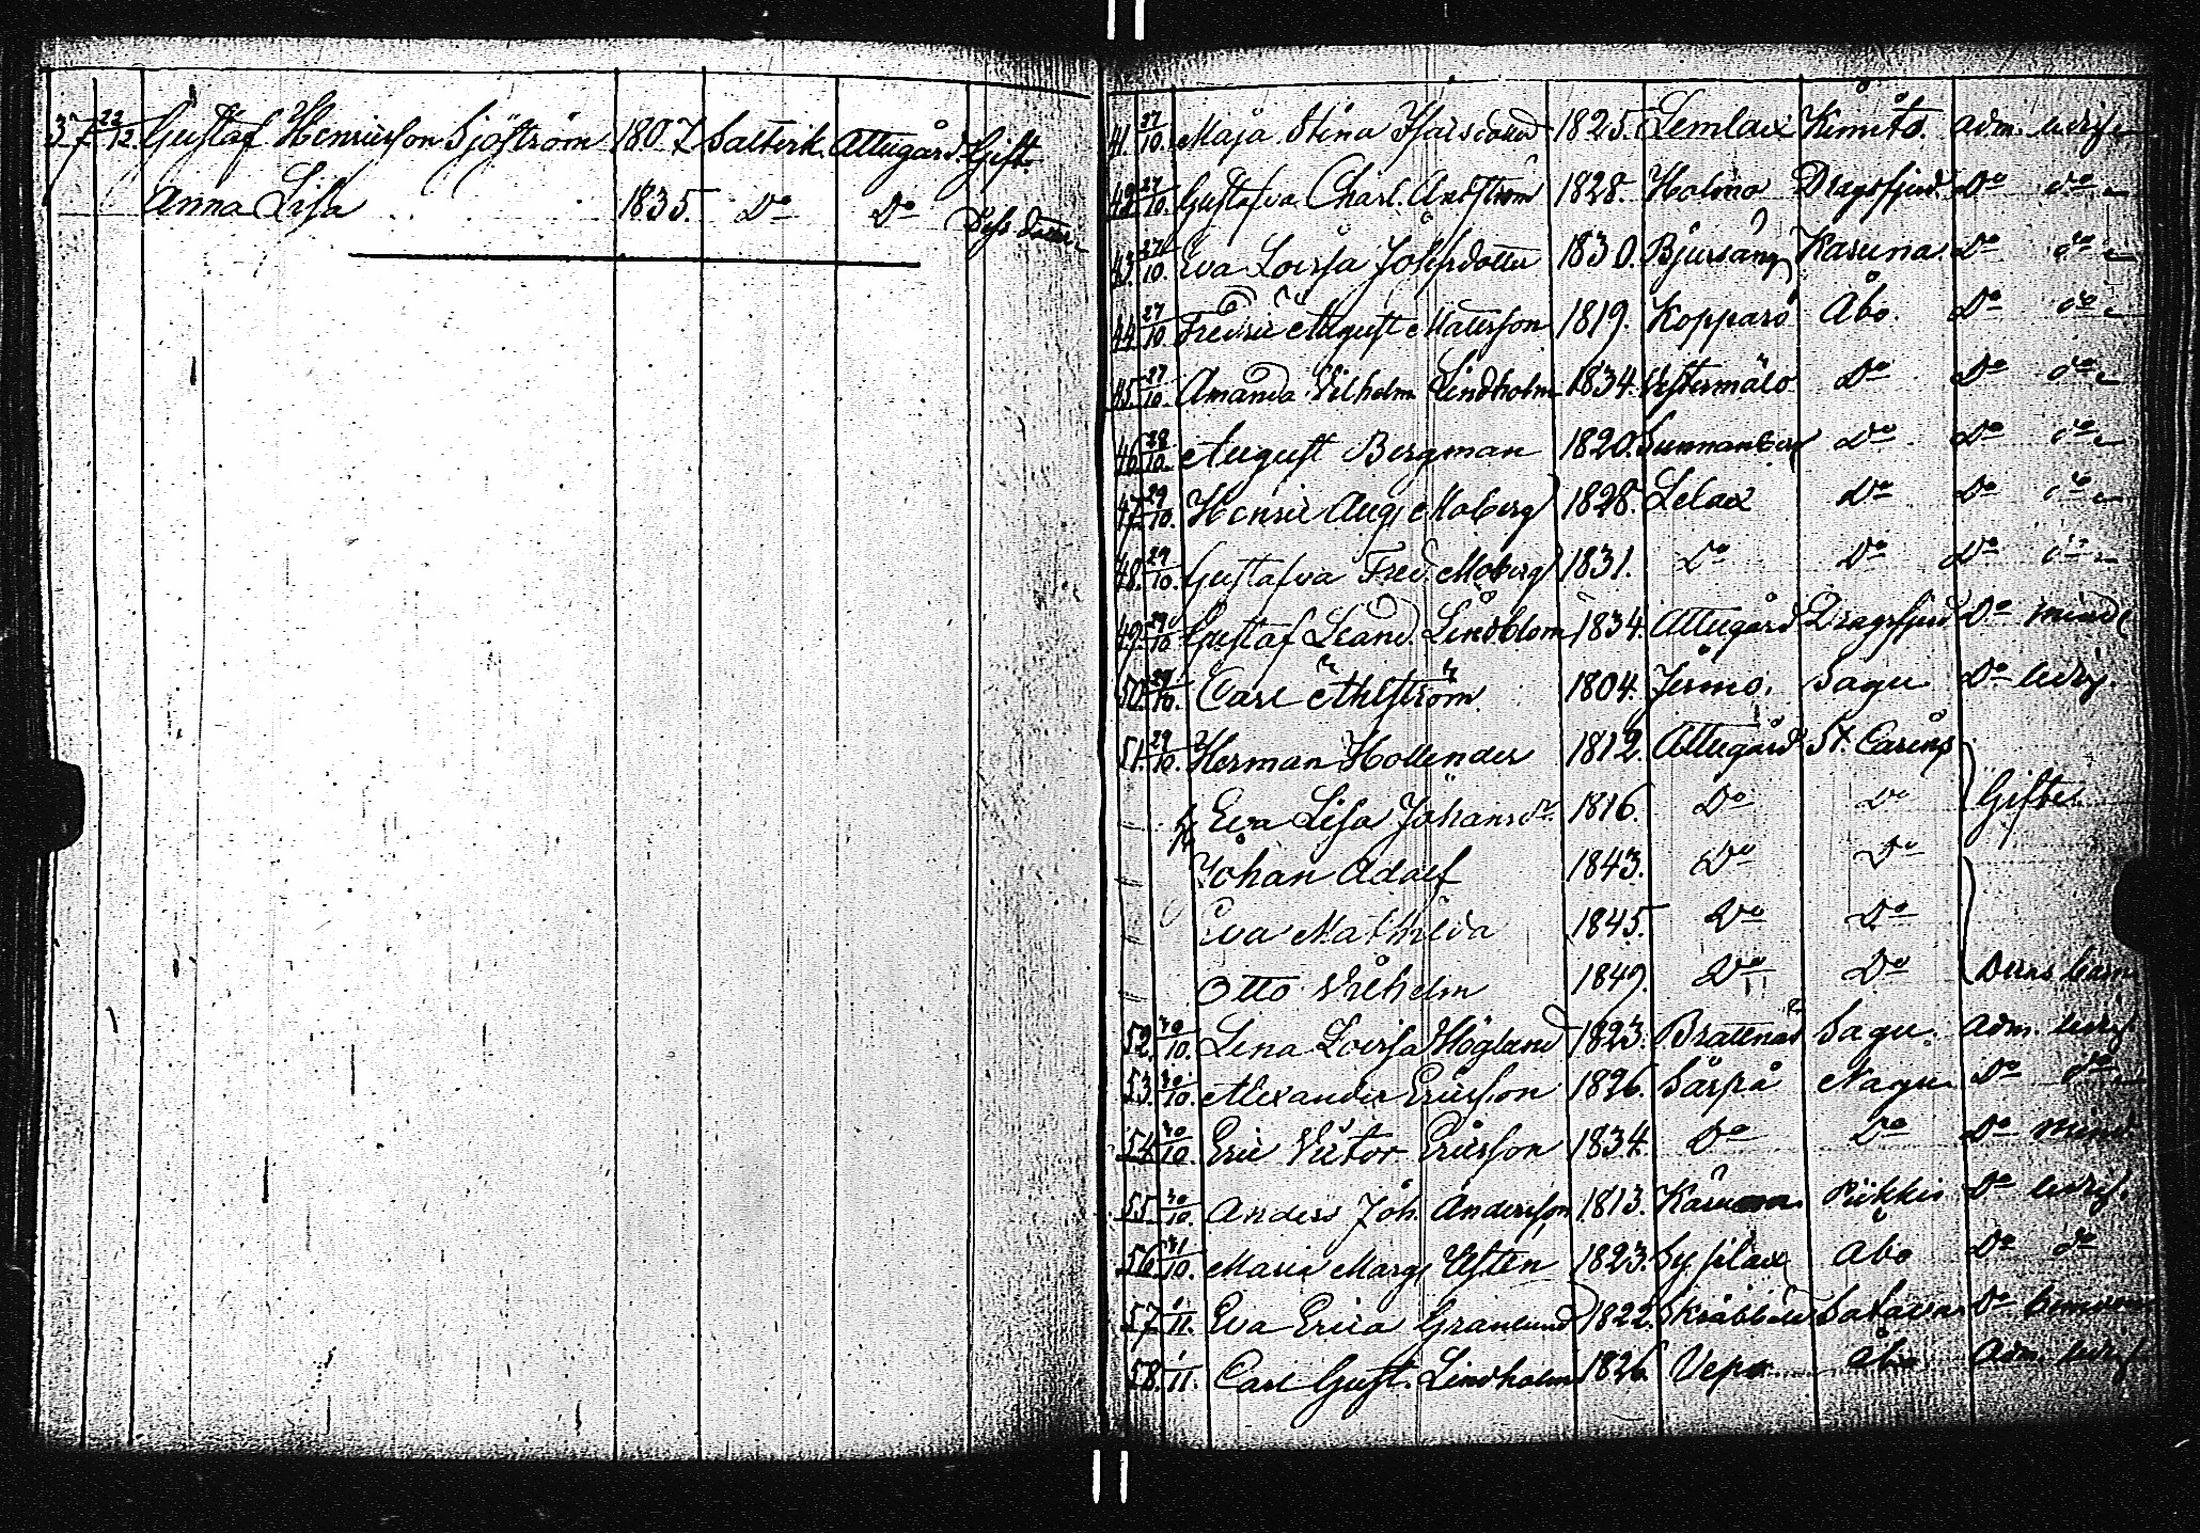 37 22/12. Gustaf Henricsson Sjöström 1807 Saltvik. Attugård. Gift.
Anna Lisa 1835. Do Do Dess dotter
41. 27/10. Maja Stina 1825. Lemlax Kimito. adm. ledig
42. 27/10. Gustafva Charl. 1828. Holmo Dragsfjerd Do do
43. 27/10. Eva Lovisa Josefsdotter 1830. Bjursäng Karuna. Do do
44. 27/10. Fredric August Mattsson 1819. Kopparö Åbo. Do do
45. 27/10. Amanda Vilhelm. Lindholm 1834. Vestermälö Do Do do
46. 28/10. August Bergman 1820. Sunnanberg Do Do do
47. 29/10. Henric Aug. Moberg 1828. Lelax Do Do do
48. 29/10. Gustafva Fred. Moberg 1831. Do Do Do do
49. 29/10. Gustaf Leand. Lindblom 1834. Attugård Dragsfjerd Do mind
50. 29/10. Carl Ahlström 1804. Jermo. Sagu Do ledig.
51. 29/10. Herman Hollender 1812. Attugård St. Carins
Eva Lisa Johansdr 1816. Do Do Gifte.
Johan Adolf 1843. Do Do
Eva Mathilda 1845. Do Do
Otto Vilhelm 1849. Do Do Deras barn
52. 30/10. Lena Lovisa Höglund 1823. Brattnäs Sagu. adm. ledig
53. 30/10. Alexander Ericsson 1826. Särpå Nagu Do do
54. 30/10. Eric Victor Ericsson 1834. Do Do Do mind.
55. 30/10. Anders Joh. Andersson 1813. Pikkis Do ledig.
56. 31/10. Maria Marg. 1823. Sysilax Åbo Do do
57. 1/11. Eva Erica Granlund 1822. Skräbböle Do
58. 1/11. Carl Gust. Lindholm 1826. Vepo Åbo Adm. ledig